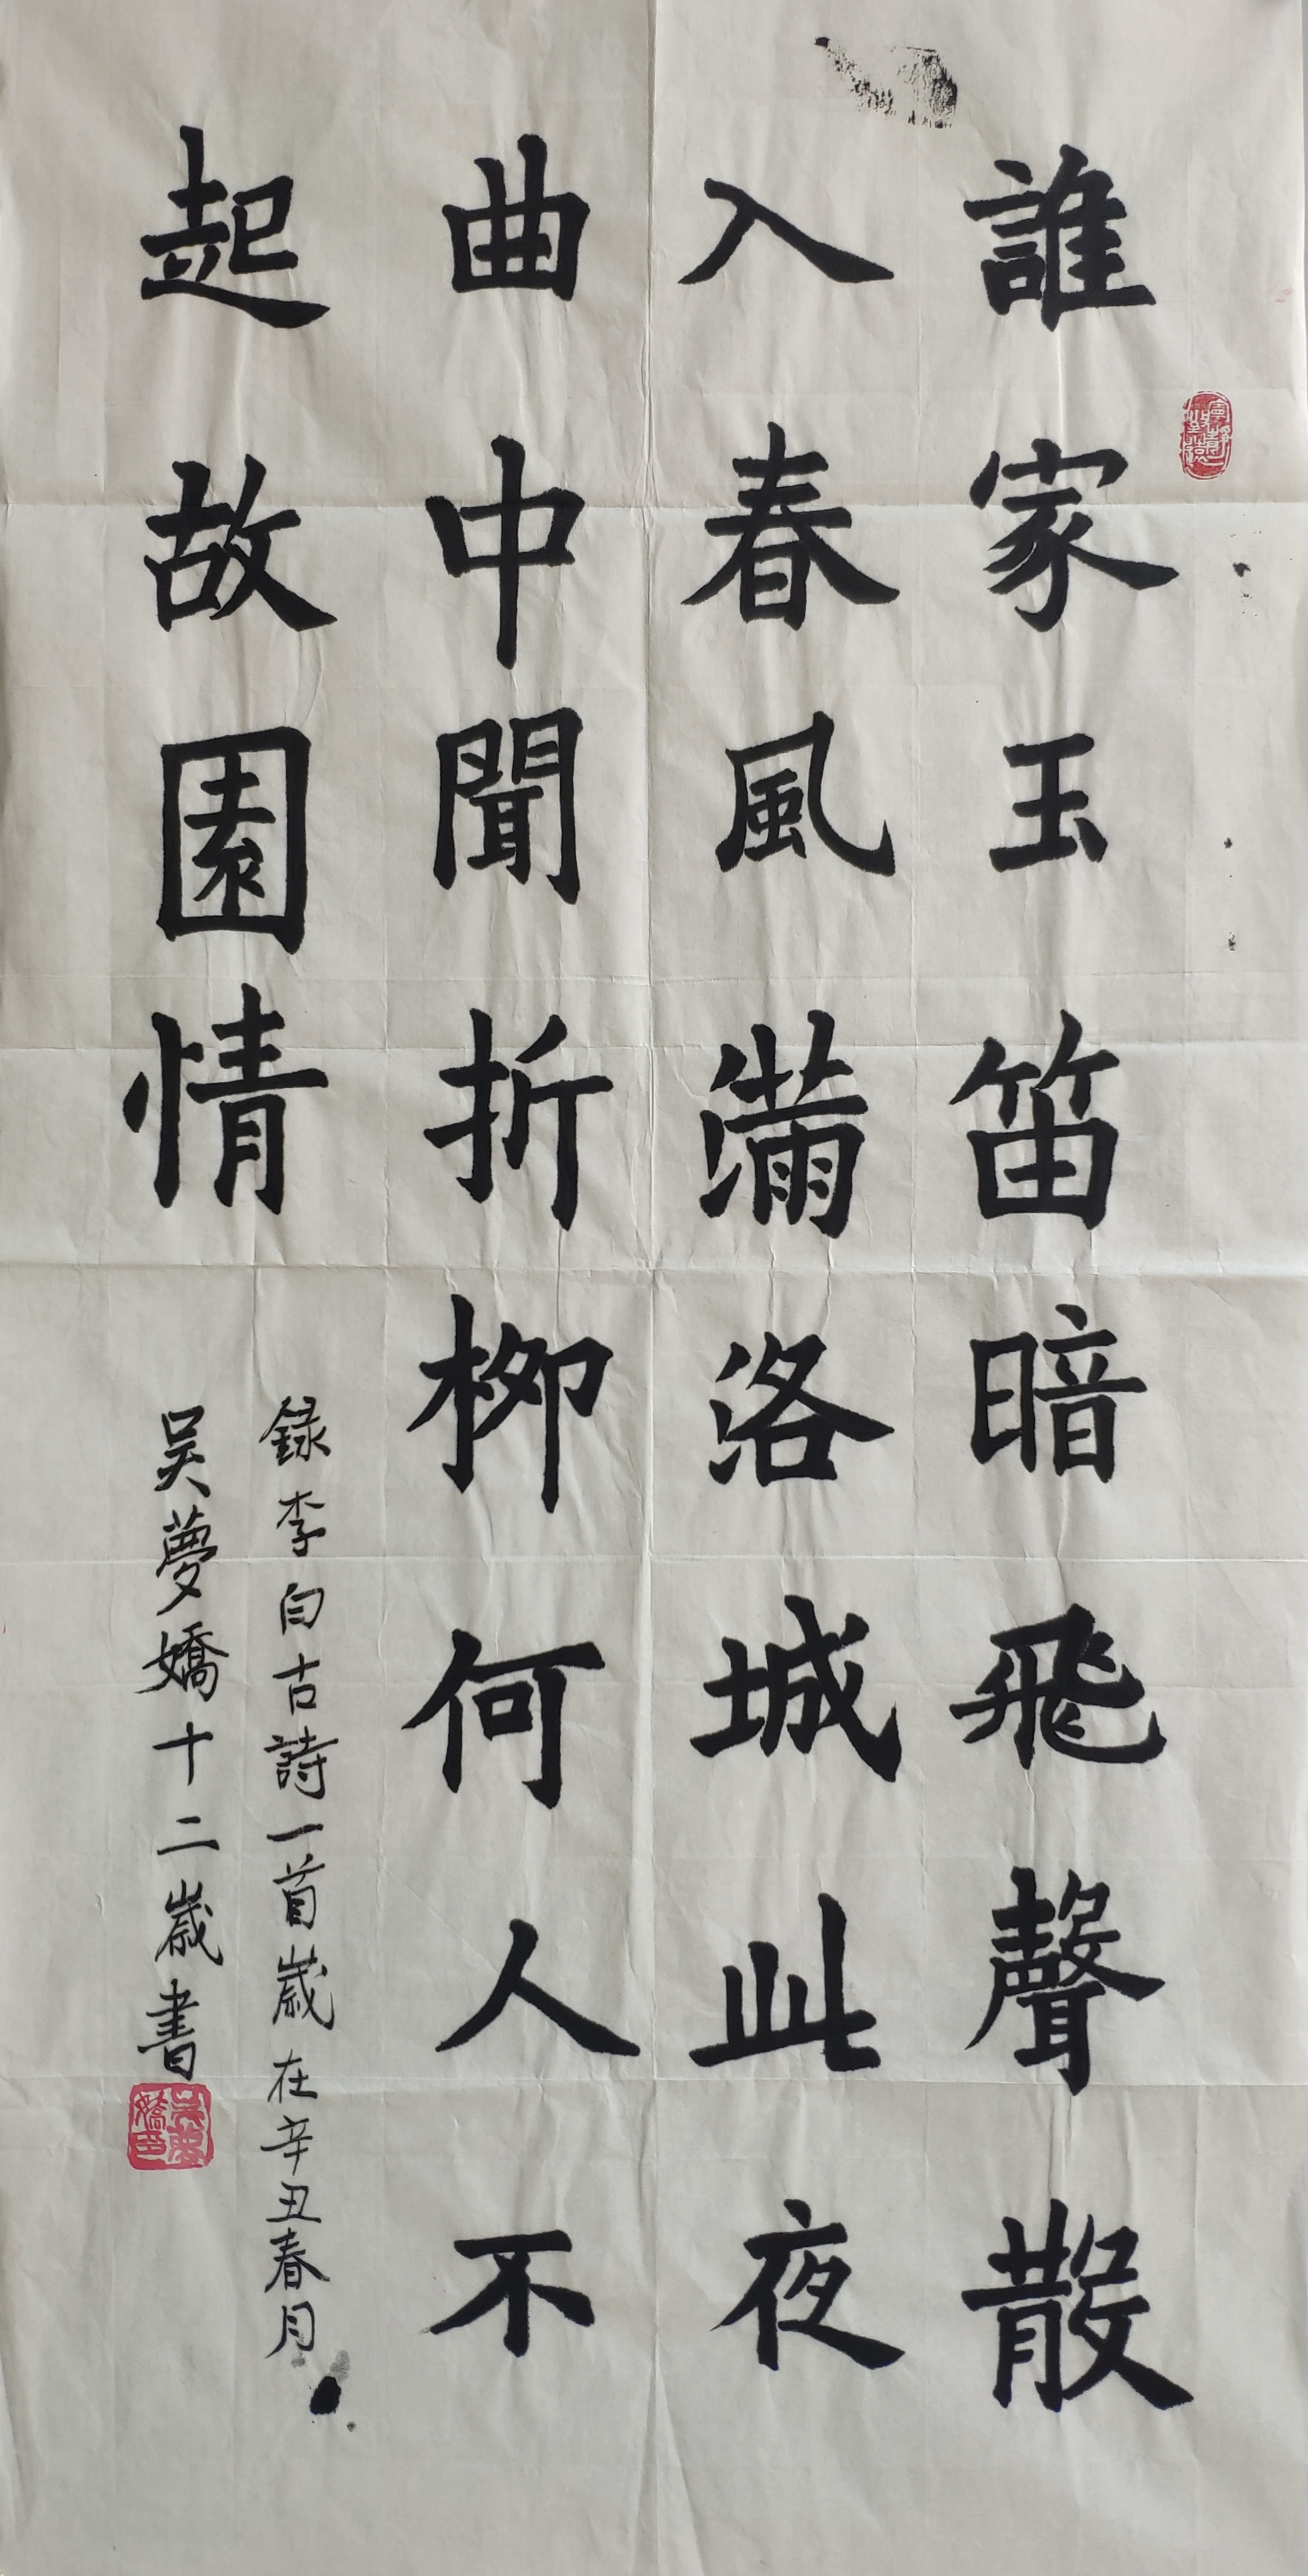 誰家玉笛暗飛聲散
入春風滿洛城此夜
曲中聞折柳何人不
起故園情
録李白古詩一首歲在辛丑春月
吳夢嬌十二歲書
吳夢嬌印